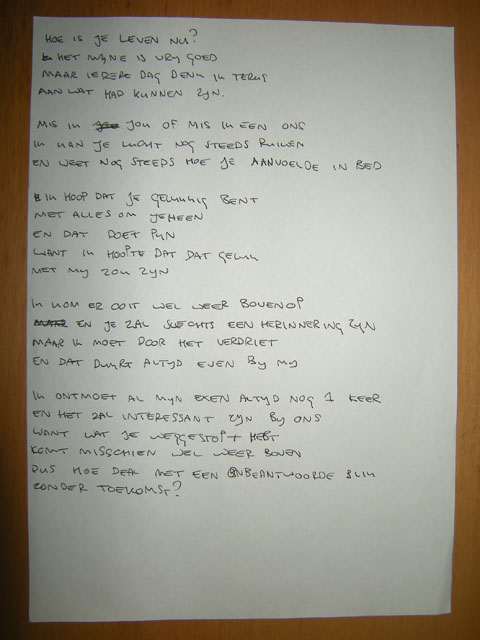 HOE IS JE LEVEN NU?
HET MIJNE IS VRIJ GOED
MAAR IEDERE DAG DENK IK TERUG
AAN WAT HAD KUNNEN ZIJN.
MIS IK JOU OF MIS IK EEN ONS
IK KAN JE LUCHT NOG STEEDS RUIKEN
EN WEET NOG STEEDS HOE JE AANVOELDE IN BED
IK HOOP DAT JE GELUKKIG BENT
MET ALLES OM JE HEEN
EN DAT DOET PIJN
WANT IK HOOPTE DAT DAT GELUK
MET MIJ ZOU ZIJN
IK KOM ER OOIT WEL WEER BOVENOP
EN JE ZAL SLECHTS EEN HERINNERING ZIJN
MAAR IK MOET DOOR HET VERDRIET
EN DAT DUURT ALTIJD EVEN BIJ MIJ
IK ONTMOET AL MIJN EXEN ALTIJD NOG 1 KEER
EN HET ZAL INTERESSANT ZIJN BIJ ONS
WANT WAT JE WEGGESTOPT HEBT
KOMT MISSCHIEN WEL WEER BOVEN
DUS HOE DEAL MET EEN ONBEANTWOORDE BLIK
ZONDER TOEKOMST?